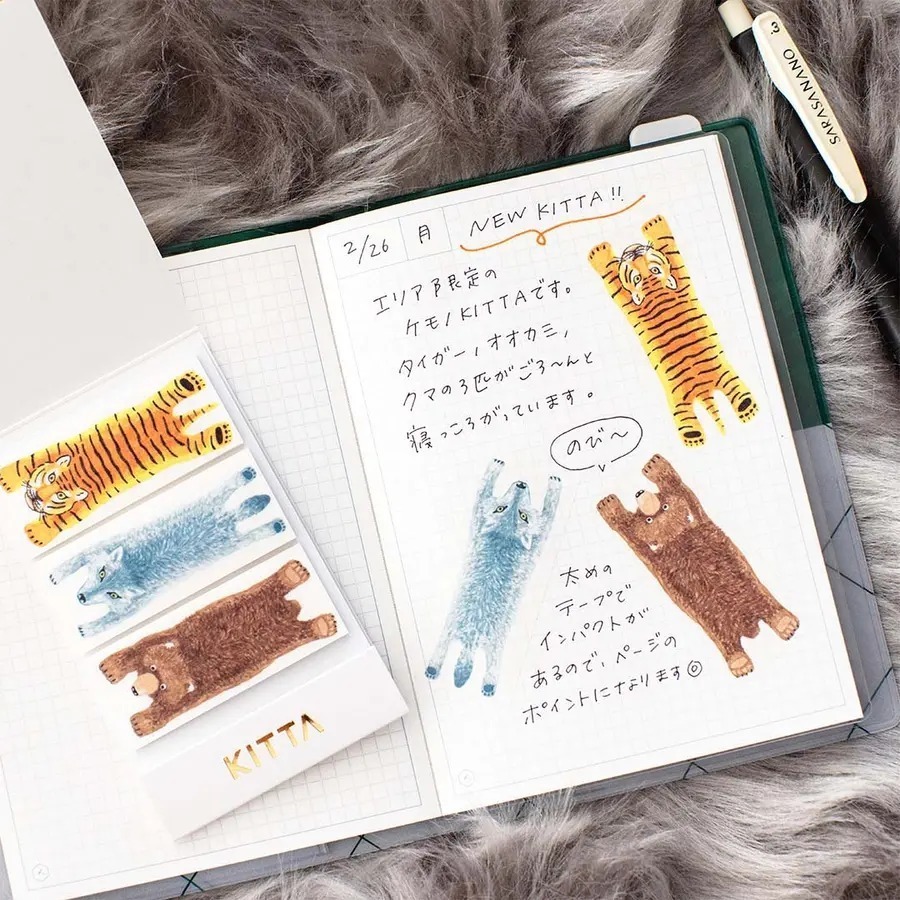 2/26 月 NEW KITTA!!
エリア限定の
ケモノKITTAです。
タイガー, オオカミ,
クマの3匹がごろ〜んと
寝っころがっています。
のび〜
太めの
テープで
インパクトが
あるので、ページの
ポイントになります◎
KITTA
SARASANANO